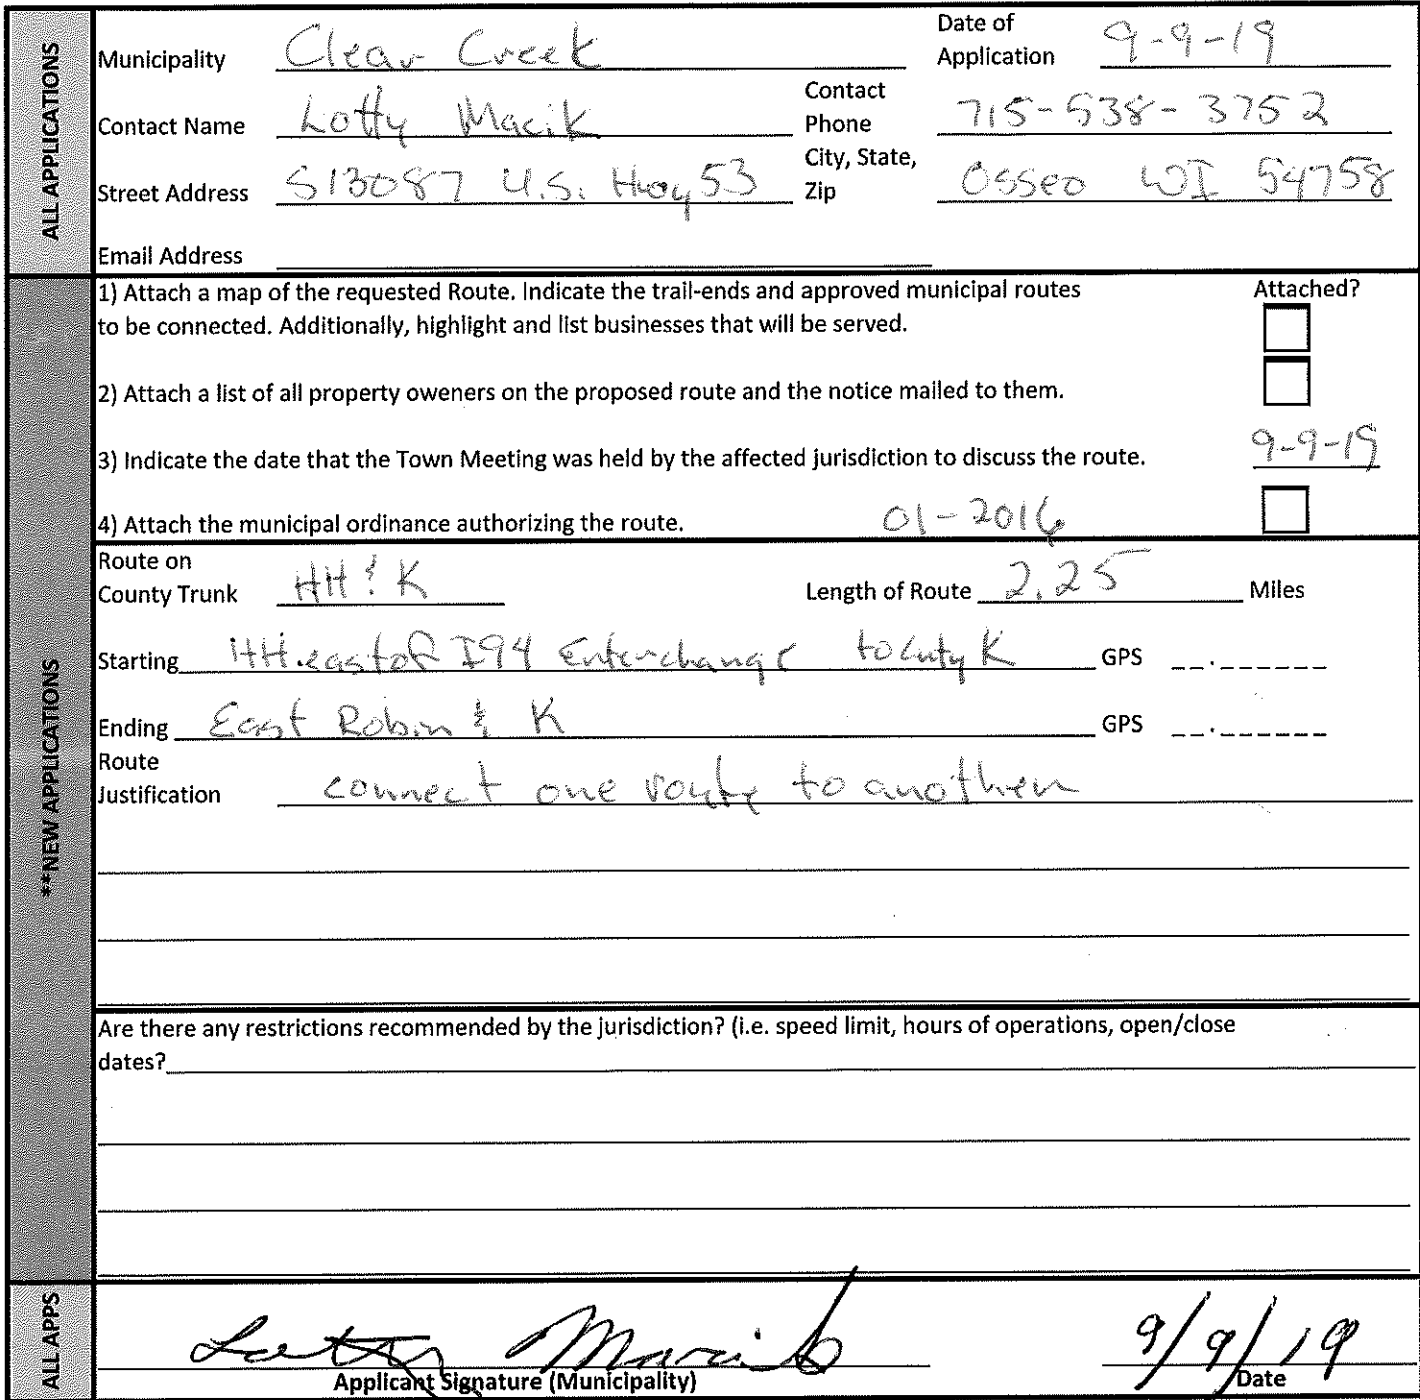 ALL APPLICATIONS
Municipality Clear Creek Date of Application 9-9-19
Contact Name Lotty Macik Contact Phone 715-538-3752
Street Address S13087 U.S. Hwy 53 City, State, Zip Osseo WI 54758
Email Address
**NEW APPLICATIONS
1) Attach a map of the requested Route. Indicate the trail-ends and approved municipal routes Attached?
to be connected. Additionally, highlight and list businesses that will be served.
2) Attach a list of all property oweners on the proposed route and the notice mailed to them.
3) Indicate the date that the Town Meeting was held by the affected jurisdiction to discuss the route. 9-9-19
4) Attach the municipal ordinance authorizing the route. 01-2016
Route on County Trunk HH & K Length of Route 2.25 Miles
Starting HH east of I94 Enterchange to Cnty K GPS __.______
Ending East Robin & K GPS __.______
Route Justification connect one route to another
Are there any restrictions recommended by the jurisdiction? (i.e. speed limit, hours of operations, open/close
dates?
ALL APPS
Lotty Macik 9/9/19
Applicant Signature (Municipality) Date